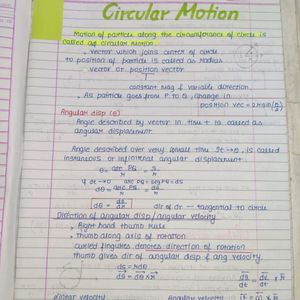 Circular Motion
Motion of particle along the circumference of circle is
called as circular motion.
• Vector which joins center of circle
to position of particle is called as radius
vector or position vector
constant mag & variable direction
• As particle goes from P to Q, change in
position vec = 2r sin(θ/2)
Angular disp (θ)
Angle described by vector in time t is called as
angular displacement.
Angle described over very small time δt→0, is called
instaneous or infinitinal angular displacement.
θ = arc PQ / r = s/r
if dt→0 arc PQ = seg PQ = ds
dθ = arc PQ / r = ds/r
dθ = ds/r dir of dr — tangential to circle
Direction of angular disp/ angular velocity
• Right hand thumb rule
• thumb along axis of rotation
curled fingures denotes direction of rotation
thumb gives dir of angular disp & ang velocity.
ds = rdθ
ds = dθ × r
Linear velocity Angular velocity